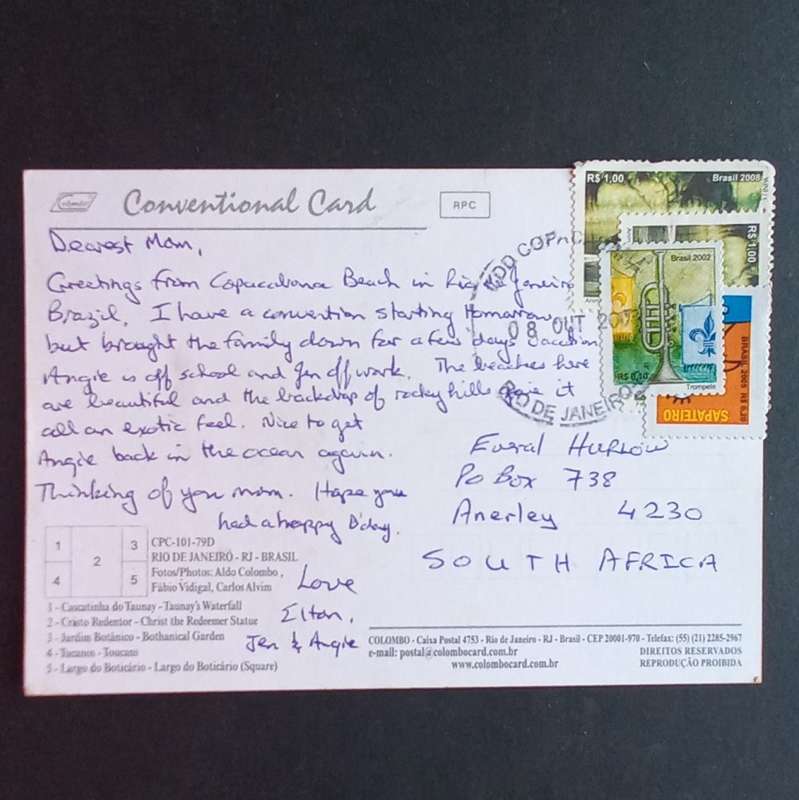 Conventional Card
RPC
Dearest Mom,
Greetings from Copacabana Beach in Rio de Janeiro
Brazil. I have a convention starting tomorrow
but brought the family down for a few days vacation
Angie is off school and Jen off work. The beaches here
are beautiful and the backdrop of rocky hills give it
all an exotic feel. Nice to get
Angie back in the ocean again.
Thinking of you mom. Hope you
had a happy B'day.
Love
Elton,
Jen & Angie
R$ 1,00 Brasil 2008
R$ 1,00
Brasil 2002
R$ 0,10
Trompete
BRASIL 2005
SAPATEIRO
08 OUT
RIO DE JANEIRO
Hurlow
PO Box 738
Anerley 4230
SOUTH AFRICA
1
2
3
4
5
CPC-101-79D
RIO DE JANEIRO - RJ - BRASIL
Fotos/Photos: Aldo Colombo,
Fábio Vidigal, Carlos Alvim
1 - Cascatinha do Taunay - Taunay's Waterfall
2 - Cristo Redentor - Christ the Redeemer Statue
3 - Jardim Botânico - Bothanical Garden
4 - Tucano - Toucan
5 - Largo do Boticário - Largo do Boticário (Square)
COLOMBO - Caixa Postal 4753 - Rio de Janeiro - RJ - Brasil - CEP 20001-970 - Telefax: (55) (21) 2285-2967
e-mail: postal@colombocard.com.br DIREITOS RESERVADOS
www.colombocard.com.br REPRODUÇÃO PROIBIDA